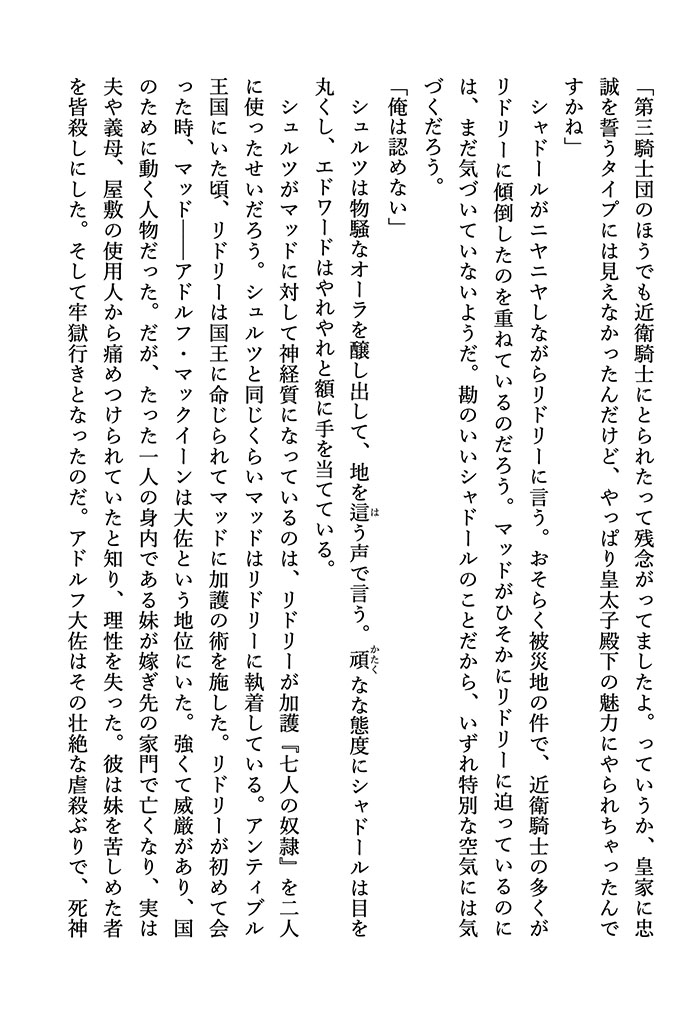 「第三騎士団のほうでも近衛騎士にとられたって残念がってましたよ。っていうか、皇家に忠
誠を誓うタイプには見えなかったんだけど、やっぱり皇太子殿下の魅力にやられちゃったんで
すかね」
　シャドールがニヤニヤしながらリドリーに言う。おそらく被災地の件で、近衛騎士の多くが
リドリーに傾倒したのを重ねているのだろう。マッドがひそかにリドリーに迫っているのに
は、まだ気づいていないようだ。勘のいいシャドールのことだから、いずれ特別な空気には気
づくだろう。
「俺は認めない」
　シュルツは物騒なオーラを醸し出して、地を這う声で言う。頑なな態度にシャドールは目を
丸くし、エドワードはやれやれと額に手を当てている。
　シュルツがマッドに対して神経質になっているのは、リドリーが加護『七人の奴隷』を二人
に使ったせいだろう。シュルツと同じくらいマッドはリドリーに執着している。アンティブル
王国にいた頃、リドリーは国王に命じられてマッドに加護の術を施した。リドリーが初めて会
った時、マッド――アドルフ・マックイーンは大佐という地位にいた。強くて威厳があり、国
のために動く人物だった。だが、たった一人の身内である妹が嫁ぎ先の家門で亡くなり、実は
夫や義母、屋敷の使用人から痛めつけられていたと知り、理性を失った。彼は妹を苦しめた者
を皆殺しにした。そして牢獄行きとなったのだ。アドルフ大佐はその壮絶な虐殺ぶりで、死神